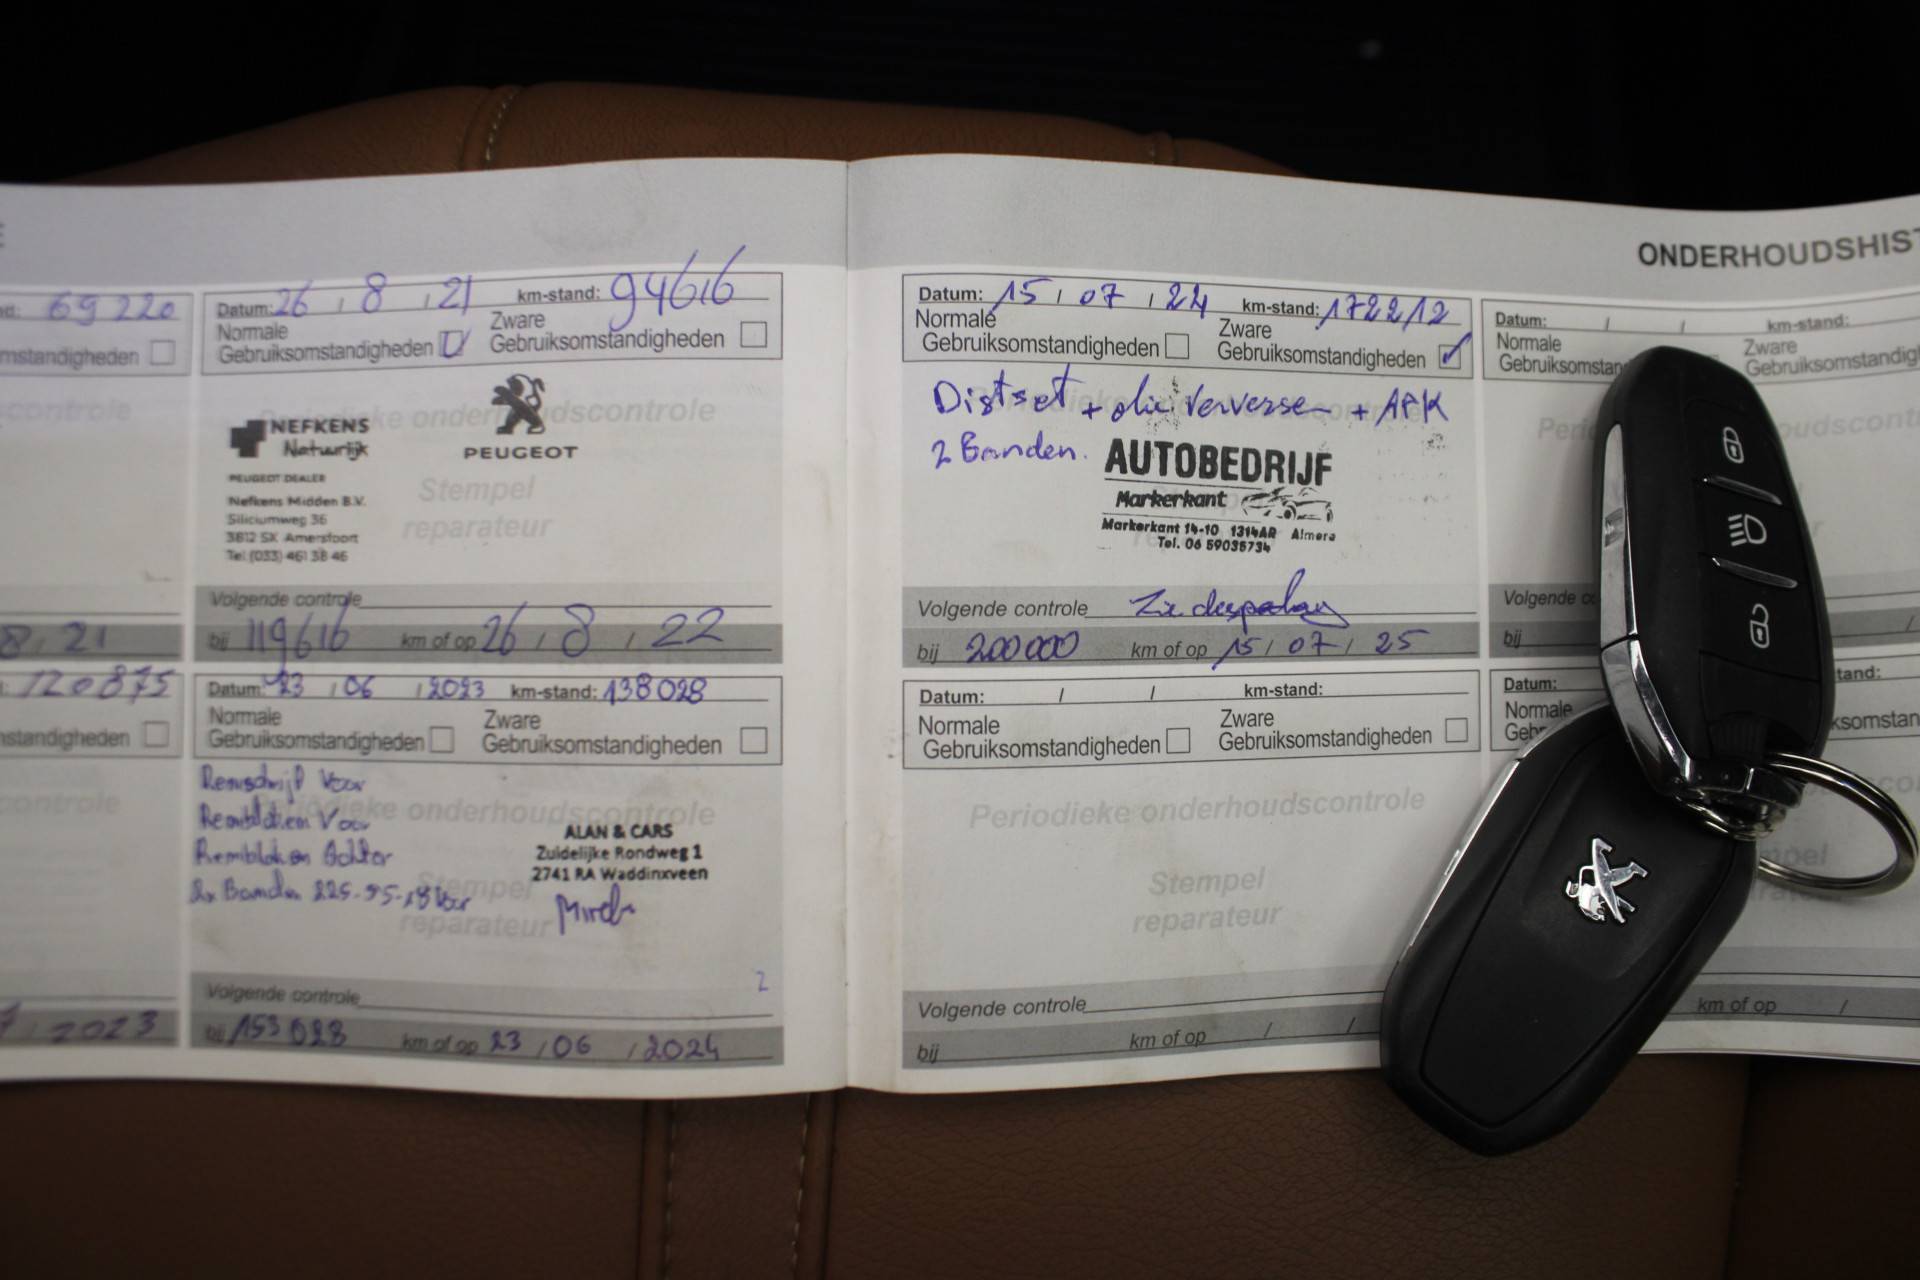 ONDERHOUDSHIST
69220
mstandigheden
8 / 21
120875
nstandigheden
2023
Datum: 26 / 8 / 21 km-stand: 94616
Normale
Gebruiksomstandigheden
Zware
Gebruiksomstandigheden
Periodieke onderhoudscontrole
NEFKENS
Natuurlijk
PEUGEOT
PEUGEOT DEALER
Nefkens Midden B.V.
Siliciumweg 36
3812 SX Amersfoort
Tel: (033) 461 38 46
Stempel
reparateur
Volgende controle
bij 119616 km of op 26 / 8 / 22
Datum: 23 / 06 / 2023 km-stand: 138028
Normale
Gebruiksomstandigheden
Zware
Gebruiksomstandigheden
Periodieke onderhoudscontrole
Remschijf Voor
Remblokken Voor
Remblokken Achter
2x Banden 225-55-18 Voor
ALAN & CARS
Zuidelijke Rondweg 1
2741 RA Waddinxveen
Stempel
reparateur
Volgende controle
bij 153028 km of op 23 / 06 / 2024
Datum: 15 / 07 / 24 km-stand: 172212
Normale
Gebruiksomstandigheden
Zware
Gebruiksomstandigheden
Distset + olie Verversen + APK
2 Banden.
AUTOBEDRIJF
Markerkant
Markerkant 14-10 1314AR Almere
Tel. 06 59035734
Volgende controle Zie
bij 200000 km of op 15 / 07 / 25
Datum: / / km-stand:
Normale
Gebruiksomstandigheden
Zware
Gebruiksomstandigheden
Periodieke onderhoudscontrole
Stempel
reparateur
Volgende controle
bij km of op / /
Datum: / / km-stand:
Normale
Gebruiksomstan
Zware
Gebruiksomstandighe
Volgende
bij
Datum:
Normale
km of op /